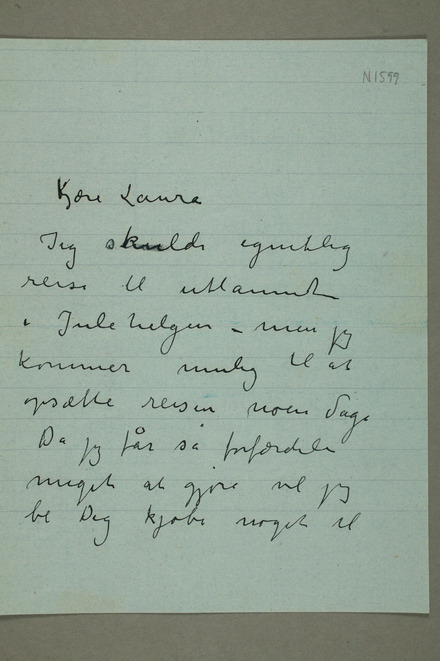 N 1599
Kjære Laura
Jeg skulde egentlig
reise til utlandet
i Julehelgen – men jeg
kommer mulig til at
opsætte reisen noen dage
Da jeg får så forfærdeli
meget at gjøre vil jeg
be Deg kjøbe noget til